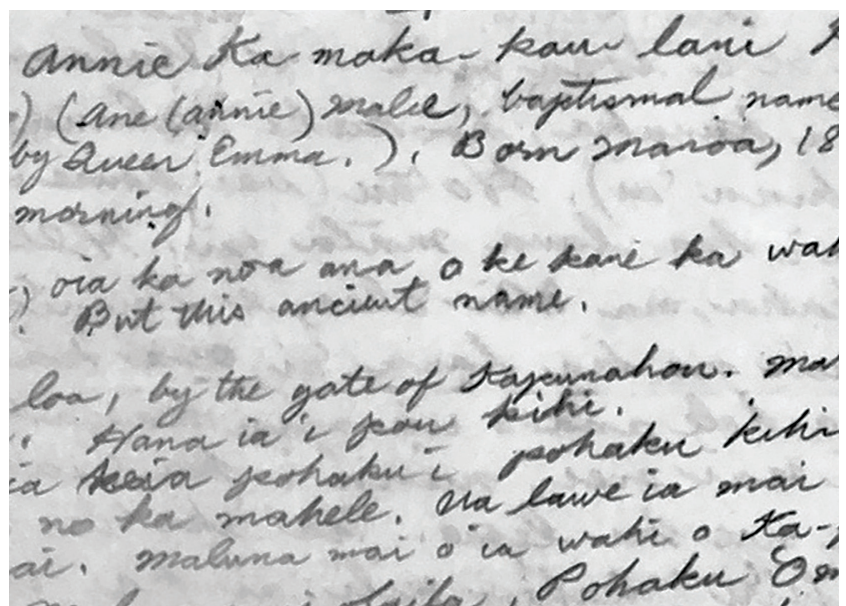 Annie Ka maka-kau-lani
) (Ane (Annie) Malie, baptismal name
by Queen Emma.). Born Manoa, 18
morning.
, oia ka noa ana o ke kane ka wah
). But this ancient name.
loa, by the gate of Kapunahou. Ma
. Hana ia i pou kihi.
ia keia pohaku i pohaku kihi
no ka mahele. Ua lawe ia mai
ai. Maluna mai o ia wahi o Ka-
Pohaku